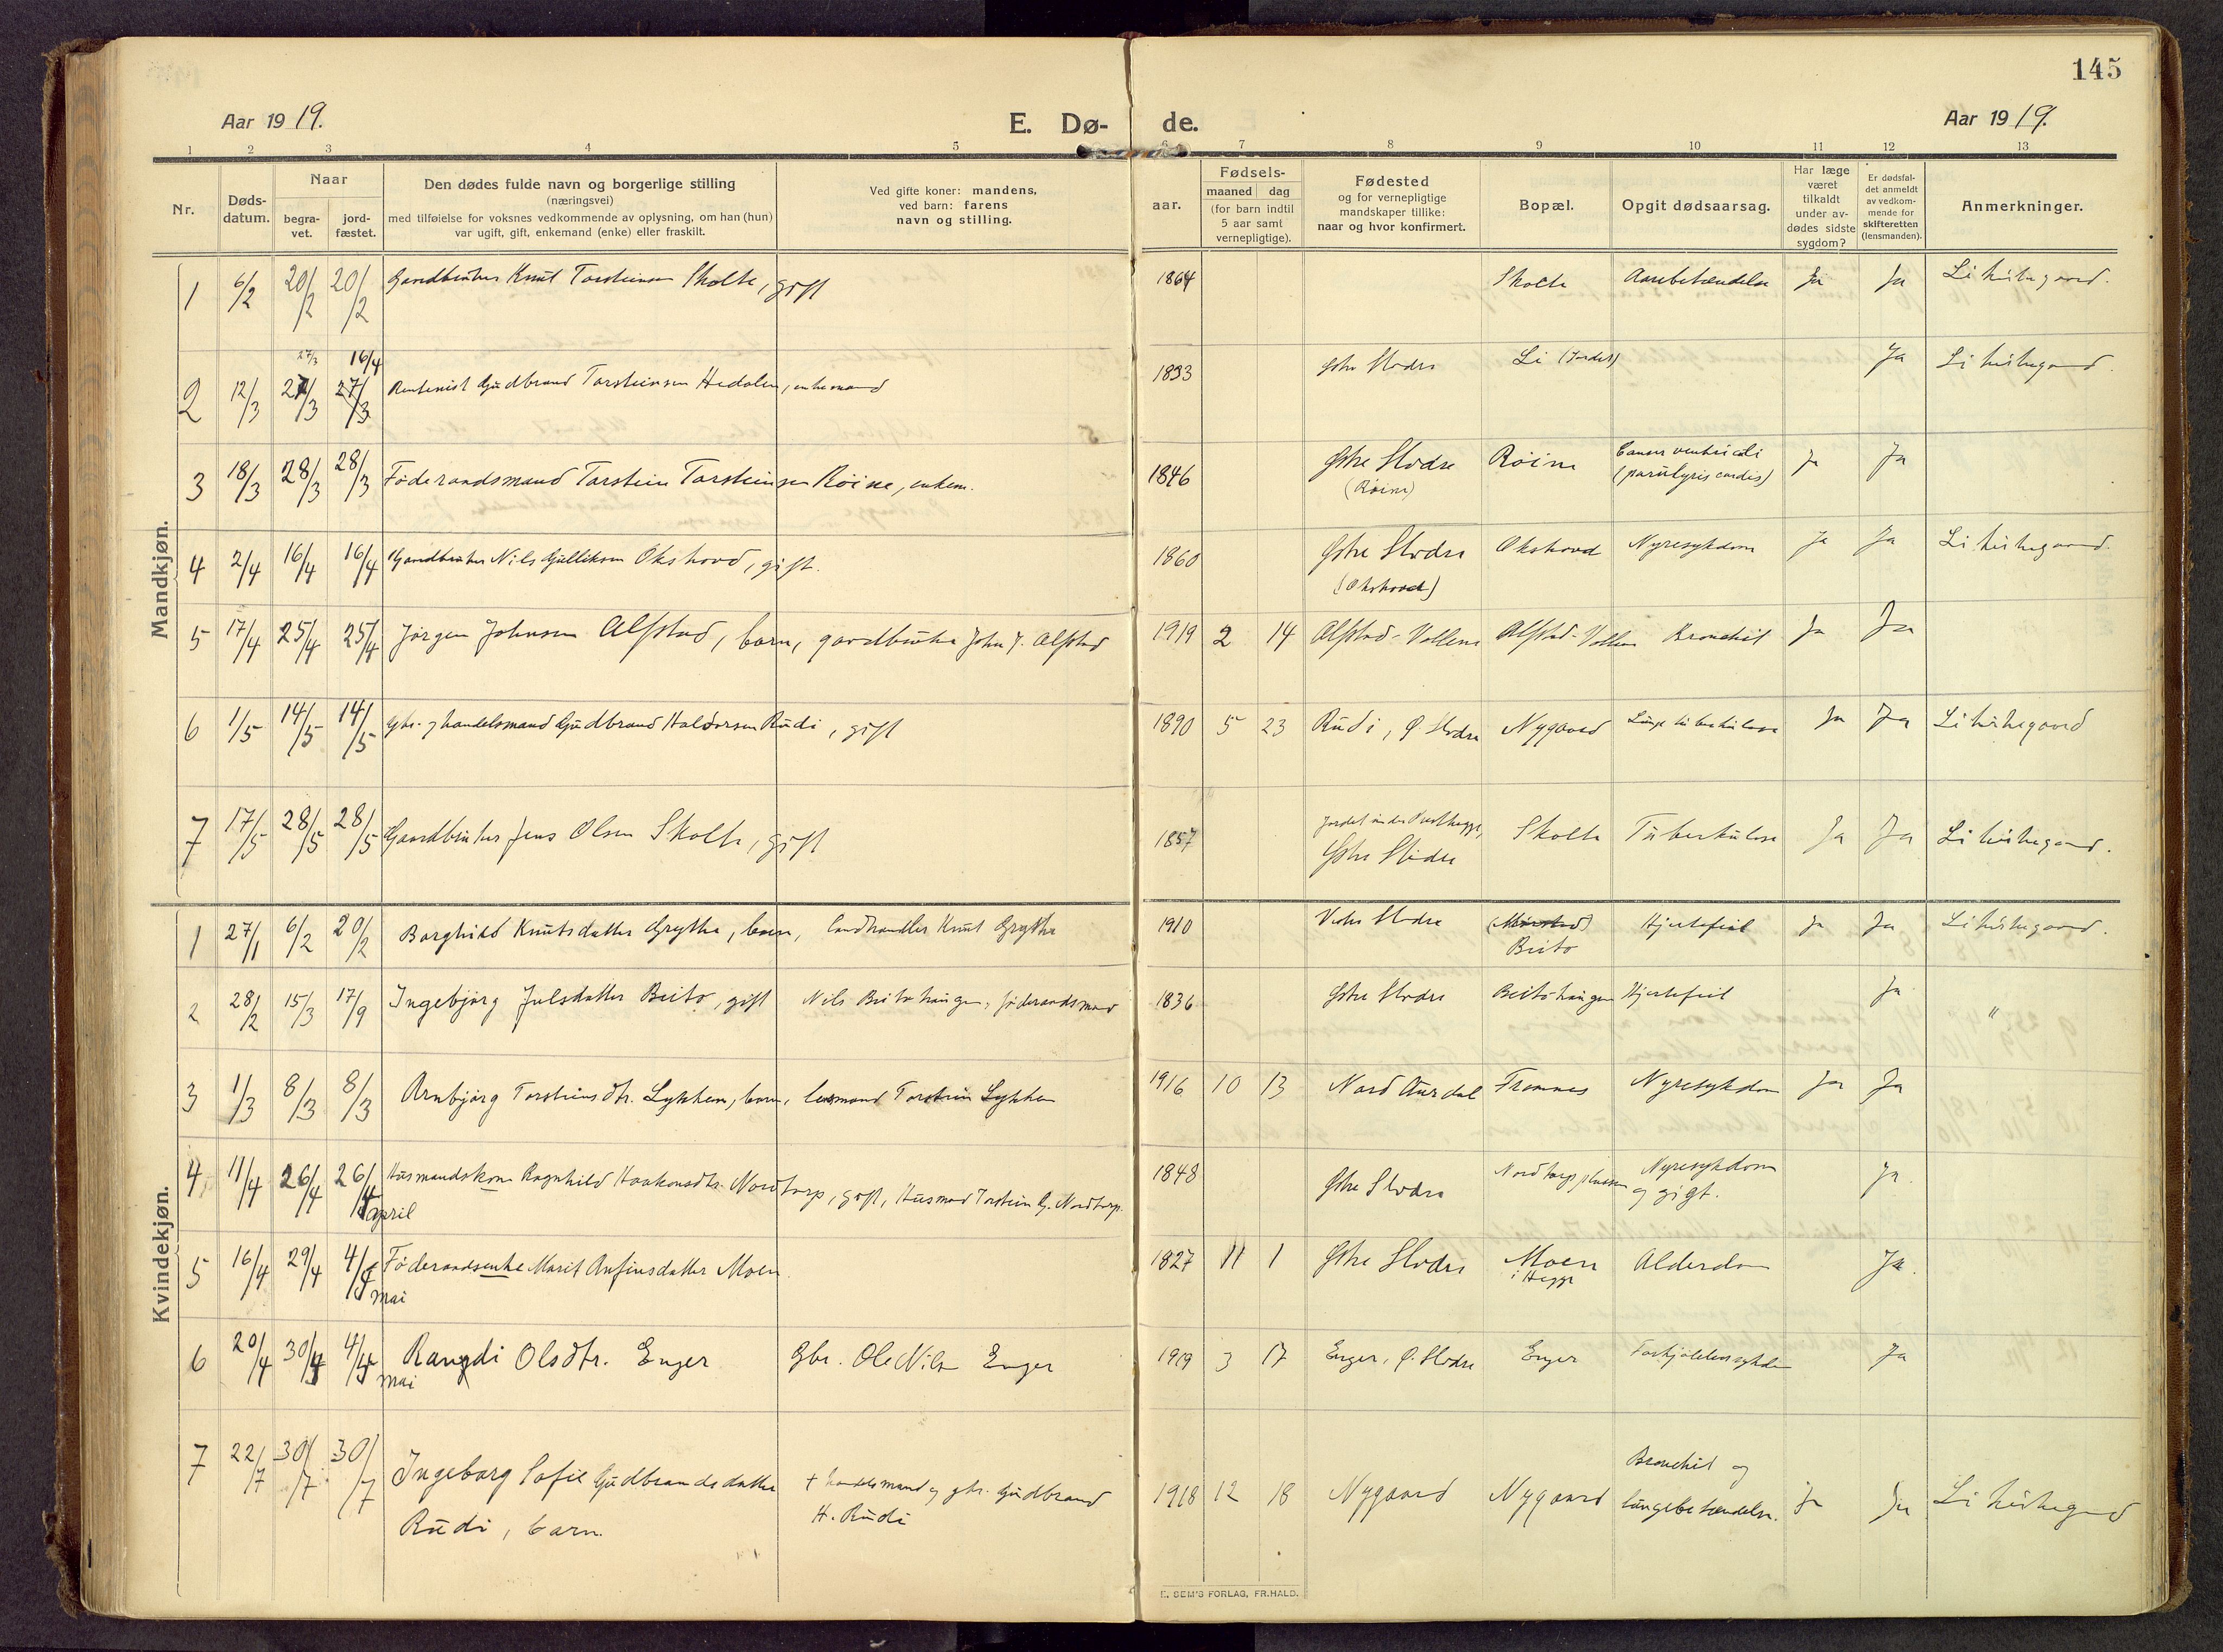 145
Aar 1919.
E. Dø-
de.
Aar 1919.
1 2 3 4 5 6 7 8 9 10 11 12 13
Nr.
Døds-
datum.
Naar
begra-
vet.
jord-
fæstet.
Den dødes fulde navn og borgerlige stilling
(næringsvei)
med tilføielse for voksnes vedkommende av oplysning, om han (hun)
var ugift, gift, enkemand (enke) eller fraskilt.
Ved gifte koner: mandens,
ved barn: farens
navn og stilling.
aar.
Fødsels-
maaned dag
(for barn indtil
5 aar samt
vernepligtige).
Fødested
og for vernepligtige
mandskaper tillike:
naar og hvor konfirmert.
Bopæl.
Opgit dødsaarsag.
Har læge
været
tilkaldt
under av-
dødes sidste
sygdom?
Er dødsfal-
det anmeldt
av vedkom-
mende for
skifteretten
(lensmanden).
Anmerkninger.
Mandkjøn.
1 6/2 20/2 20/2 Gardbruker Knut Torsteinsen Skolte, gift 1864 Skolte Aarebetændelse Ja Ja Li kirkegaard.
27/3 16/4
2 12/3 27/3 27/3 Rentenist Gudbrand Torsteinsen Hedalen, enkemand 1833 Østre Slidre Li (Jordet) Ja Li kirkegaard.
3 18/3 28/3 28/3 Føderaadsmand Torstein Torsteinsen Röine, enkem. 1846 Østre Slidre Röine Cancer ventriculi Ja Ja
(Röine) (paralysis cordis)
4 2/4 16/4 16/4 Gardbruker Nils Gulliksen Okshovd, gift. 1860 Østre Slidre Okshovd Nyresykdom Ja Ja Li kirkegaard.
(Okshovd)
5 17/4 25/4 25/4 Jörgen Johnsen Alfstad, barn, gardbruker John J. Alfstad 1919 2 14 Alfstad-Vollene Alfstad-Vollen Bronchit Ja Ja
6 1/5 14/5 14/5 Gbr. og handelsmand Gudbrand Haldorsen Rudi, gift 1890 5 23 Rudi, Ø. Slidre Nygaard Lungetuberkulose Ja Ja Li kirkegaard
7 17/5 28/5 28/5 Gaardbruker Jens Olsen Skolte, gift 1857 Jordet under Presthegge, Skolte Tuberkulose Ja Ja Li kirkegaard.
Østre Slidre
Kvindekjøn.
1 27/1 6/2 20/2 Borghild Knutsdatter Grythe, barn, landhandler Knut Grythe 1910 Vestre Slidre Hjertefeil Ja Ja Li kirkegaard.
Beito
2 28/2 15/3 17/9 Ingebjørg Julsdatter Beito, gift Nils Beitohaugen, føderaadsmand 1836 Østre Slidre Beitohaugen Hjertefeil Ja "
3 1/3 8/3 8/3 Arnbjørg Torsteinsdtr. Lykken, barn, lensmand Torstein Lykken 1916 10 13 Nord Aurdal Framnes Nyresykdom Ja Ja
4 11/4 26/4 26/4 Husmandskone Ragnhild Haakonsdtr. Nordtorp, gift, Husmand Torstein G. Nordtorp. 1848 Østre Slidre Nordtorpplassen Nyresykdom Ja.
april og gigt.
5 16/4 29/4 4/4 Føderaadsenke Marit Anfinsdatter Moen. 1827 11 1 Østre Slidre Moen Alderdom Ja.
mai i Hegge
6 20/4 30/4 4/4 Rangdi Olsdtr. Enger Gbr. Ole Nilsen Enger 1919 3 17 Enger, Ø. Slidre Enger Ja
mai
7 22/7 30/7 30/7 Ingeborg Sofie Gudbrandsdatter † handelsmand og gbr. Gudbrand 1918 12 18 Nygaard Nygaard Bronchit og Ja Ja Li kirkegaard
Rudi, barn. H. Rudi lungebetændelse.
E. SEM'S FORLAG, FR.HALD.